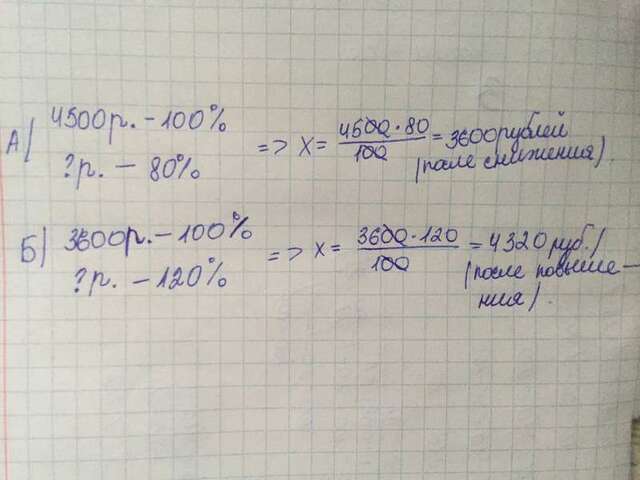 А) 4500р. – 100%
?р. – 80%
=> х = 4500·80/100 = 3600 рублей
(после снижения)
Б) 3600р. – 100%
?р. – 120%
=> х = 3600·120/100 = 4320 руб./
(после повыше–
ния)